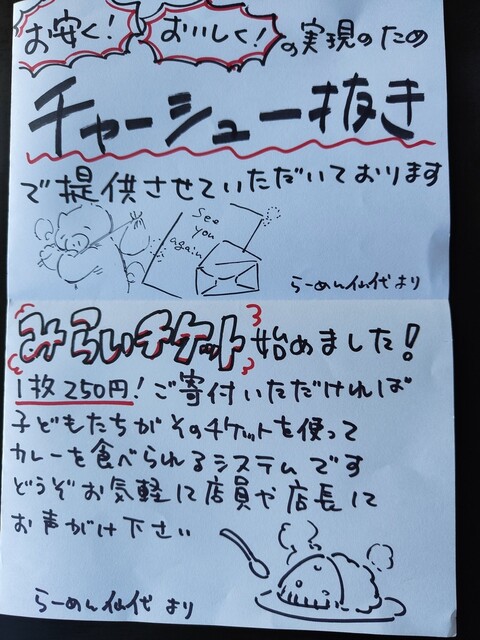 お安く! おいしく! の実現のため
チャーシュー抜き
で提供させていただいております
See
you
again
らーめん仙代より
みらいチケット始めました!
1枚250円!ご寄付いただければ
子どもたちがそのチケットを使って
カレーを食べられるシステムです
どうぞお気軽に店員や店長に
お声がけ下さい
らーめん仙代より